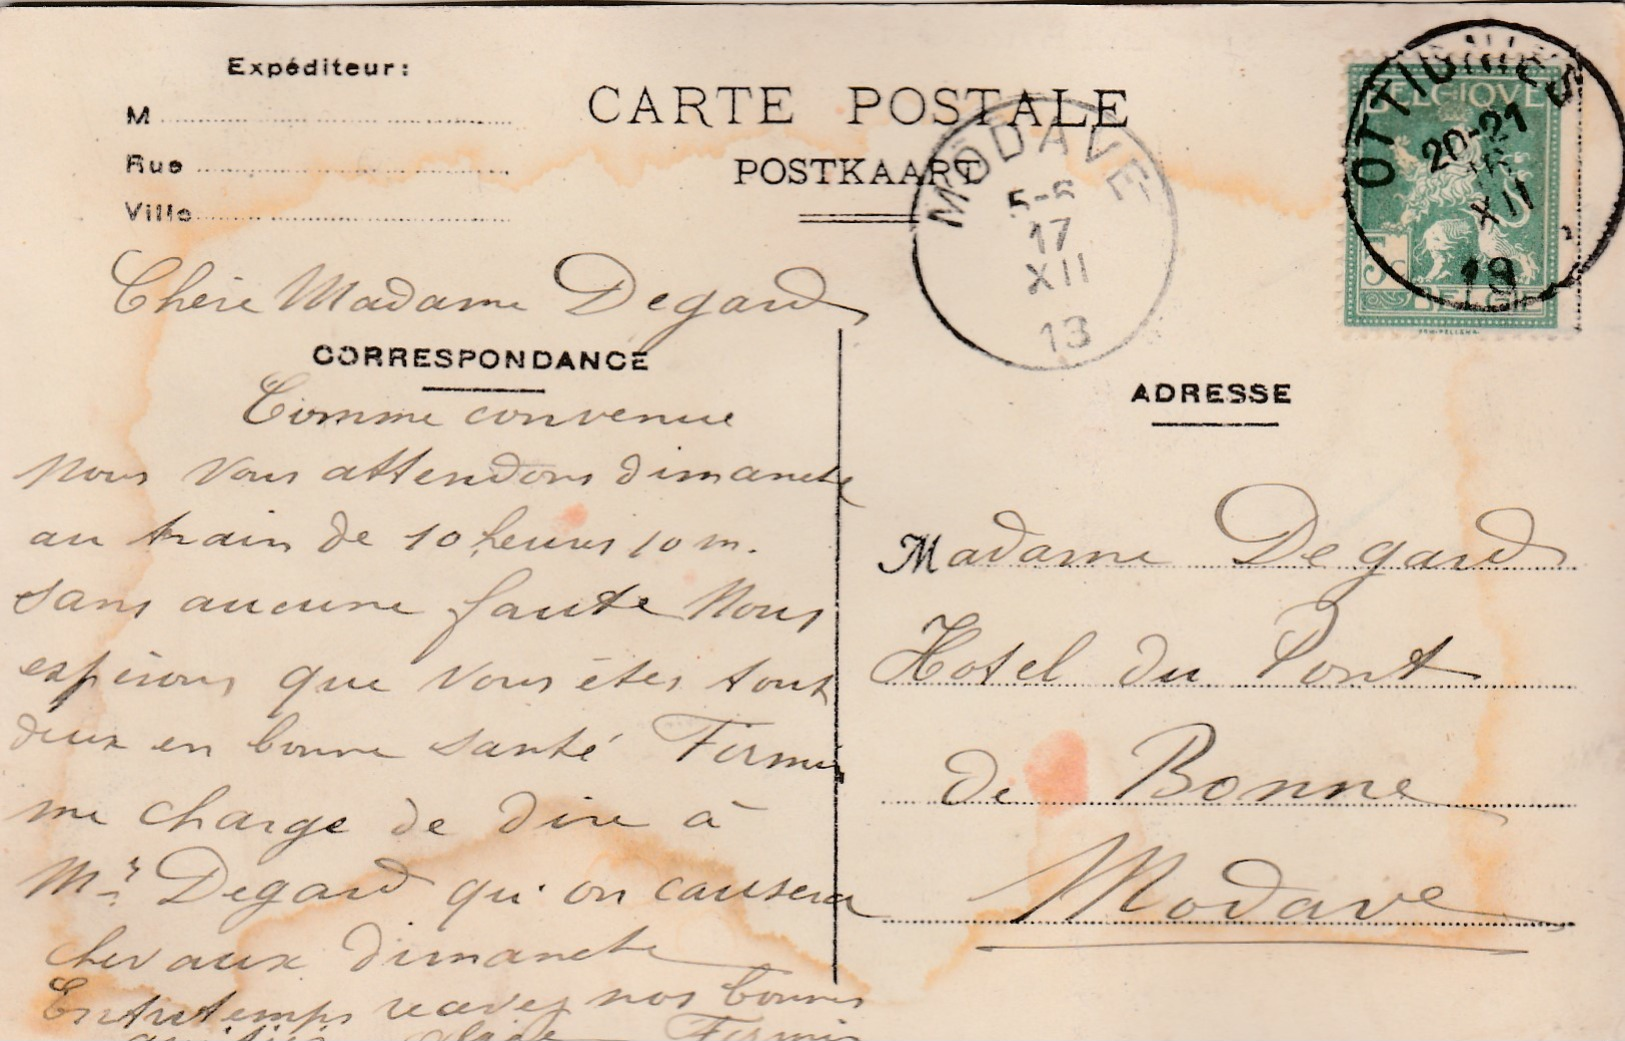 Expéditeur:
M
Rue
Ville
CARTE POSTALE
POSTKAART
MODAVE
5-6
17
XII
13
OTTIGNIES
20-21
XII
13
BELGIQUE
5c
BELGIE
Chère Madame Degard
CORRESPONDANCE
Comme convenue
nous vous attendons dimanche
au train de 10 heures 10 m.
sans aucune faute Nous
espérons que vous étes tout
deux en bonne santé Firmin
me charge de dire à
Mr Degard qu'on causera
chevaux dimanche
Entretemps recevez nos bonnes
amitiés Firmin
ADRESSE
Madame Degard
Hotel du Pont
de Bonne
Modave